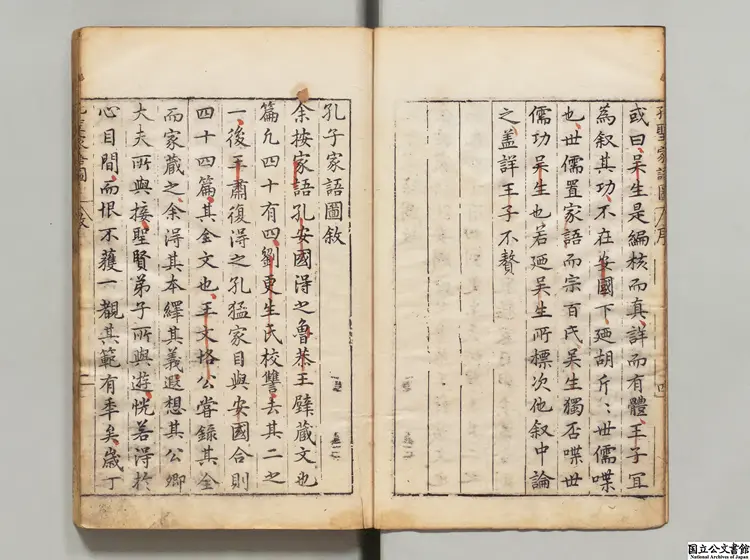 或曰吴生是編核而真詳而有體王子冝
為叙其功不在安國下廼胡斤〻世儒喋
也世儒置家語而宗百氏吴生獨否喋世
儒功吴生也若廼吴生所標次他叙中論
之盖詳王子不贅
孔子家語圖敘
余按家語孔安國淂之魯恭王壁蔵文也
篇凢四十有四劉更生氏校讐去其二之
一後王肅復淂之孔猛家目與安國合則
四十四篇其金文也王文恪公嘗録其全
而家蔵之余淂其本繹其義遐想其公卿
大夫所與接聖賢弟子所與遊恍若淂於
心目間而恨不獲一觀其範有年矣嵗丁
国立公文書館
National Archives of Japan